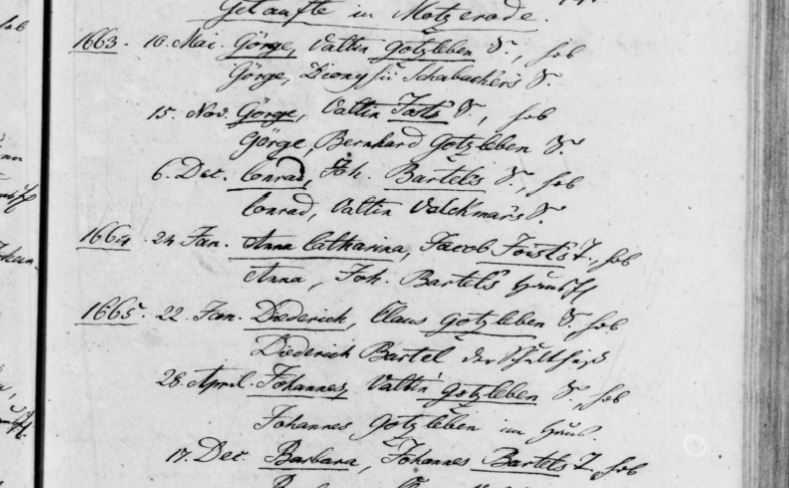 Getaufte in Motzerode.
1663. 10. Mai. Görge, Valtin Gotzleben S., hob
Görge, Dionysii Schabacker's S.
15. Nov. Görge, Valtin Josts S., hob
Görge, Bernhard Gotzleben S.
6. Dec. Conrad, Joh. Bartels S., hob
Conrad, Valtin Valckmar's S.
1664. 24. Jan. Anna Catharina, Jacob Josts T., hob
Anna, Joh. Bartels Hausfr
1665. 22. Jan. Diederich, Claus Gotzleben S. hob
Diederich Bartel der Schultheiß
28. April. Johannes, Valtin Gotzleben S., hob
Johannes Gotzleben im Haus.
17. Dec. Barbara, Johannes Bartels T., hob